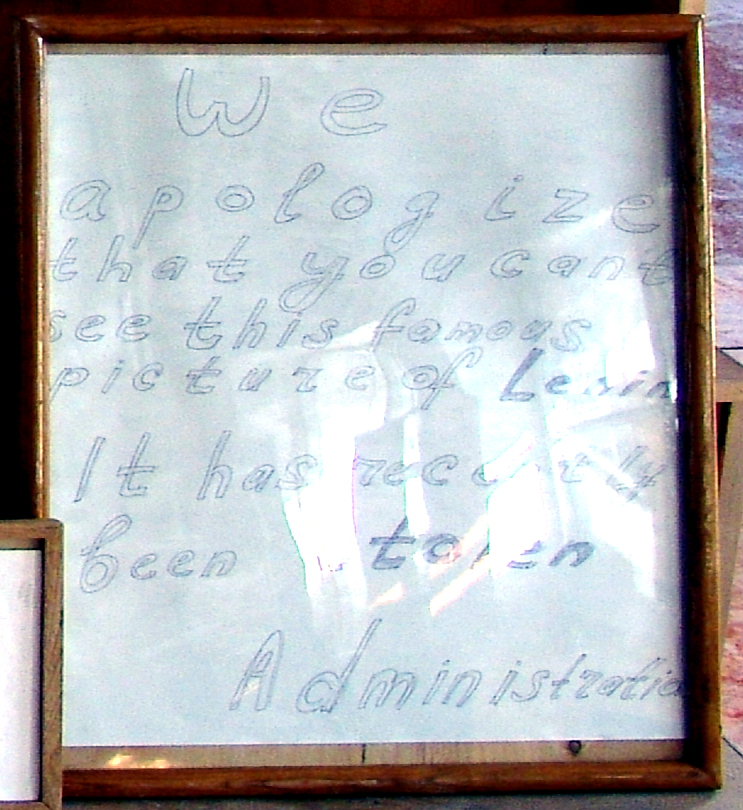 We
apologize
that you cant
see this famous
picture of Lenin
It has recently
been stolen
Administratio